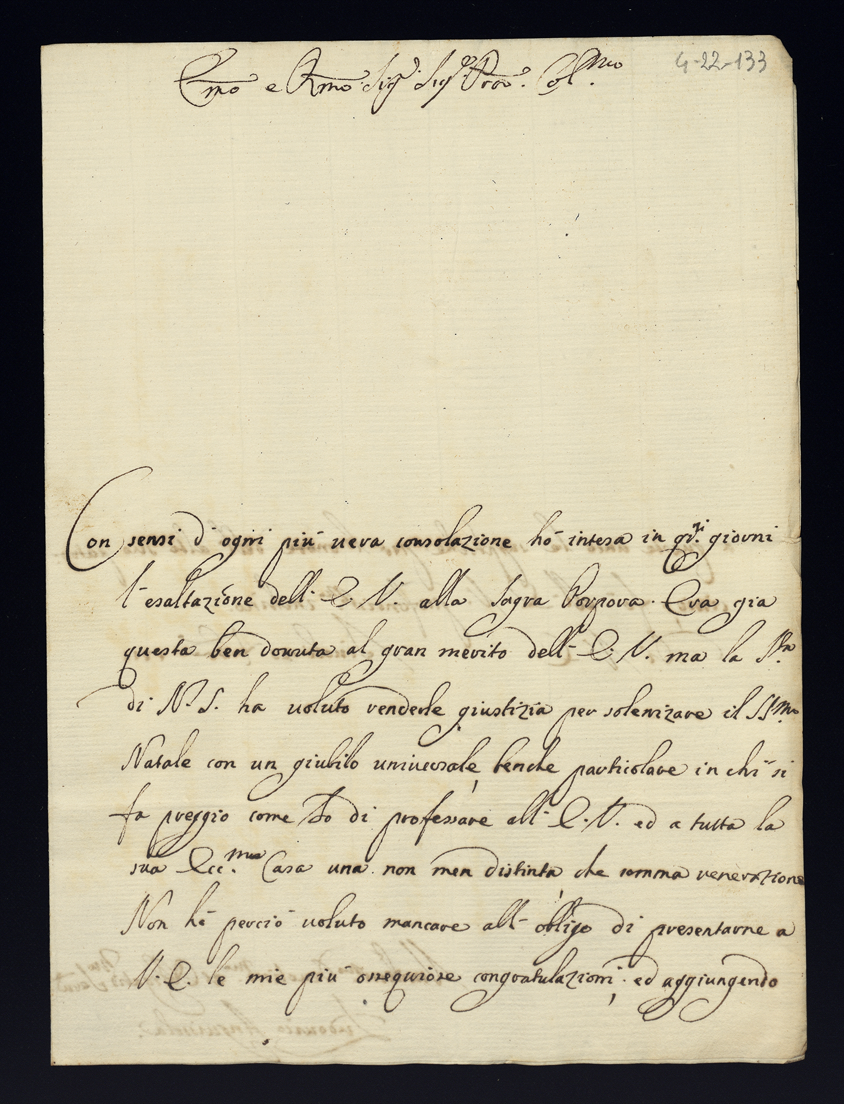 4-22-133
Emo e Rmo Sigr Sigr Pron Colmo
Con sensi d'ogni più vera consolazione hò intesa in qti giorni
l'esaltazione dell'E. V. alla Sagra Porpora. Era già
questa ben dovuta al gran merito dell'E. V. ma la Sta
di N. S. ha voluto renderle giustizia per solenizare il SSmo
Natale con un giubilo universale, benche particolare in chi si
fa preggio come Io di professare all'E. V. ed a tutta la
sua Eccma Casa una non men distinta che somma venerazione
Non hò perciò voluto mancare all'obligo di presentarne a
V. E. le mie più ossequiose congratulazioni, ed aggiungendo